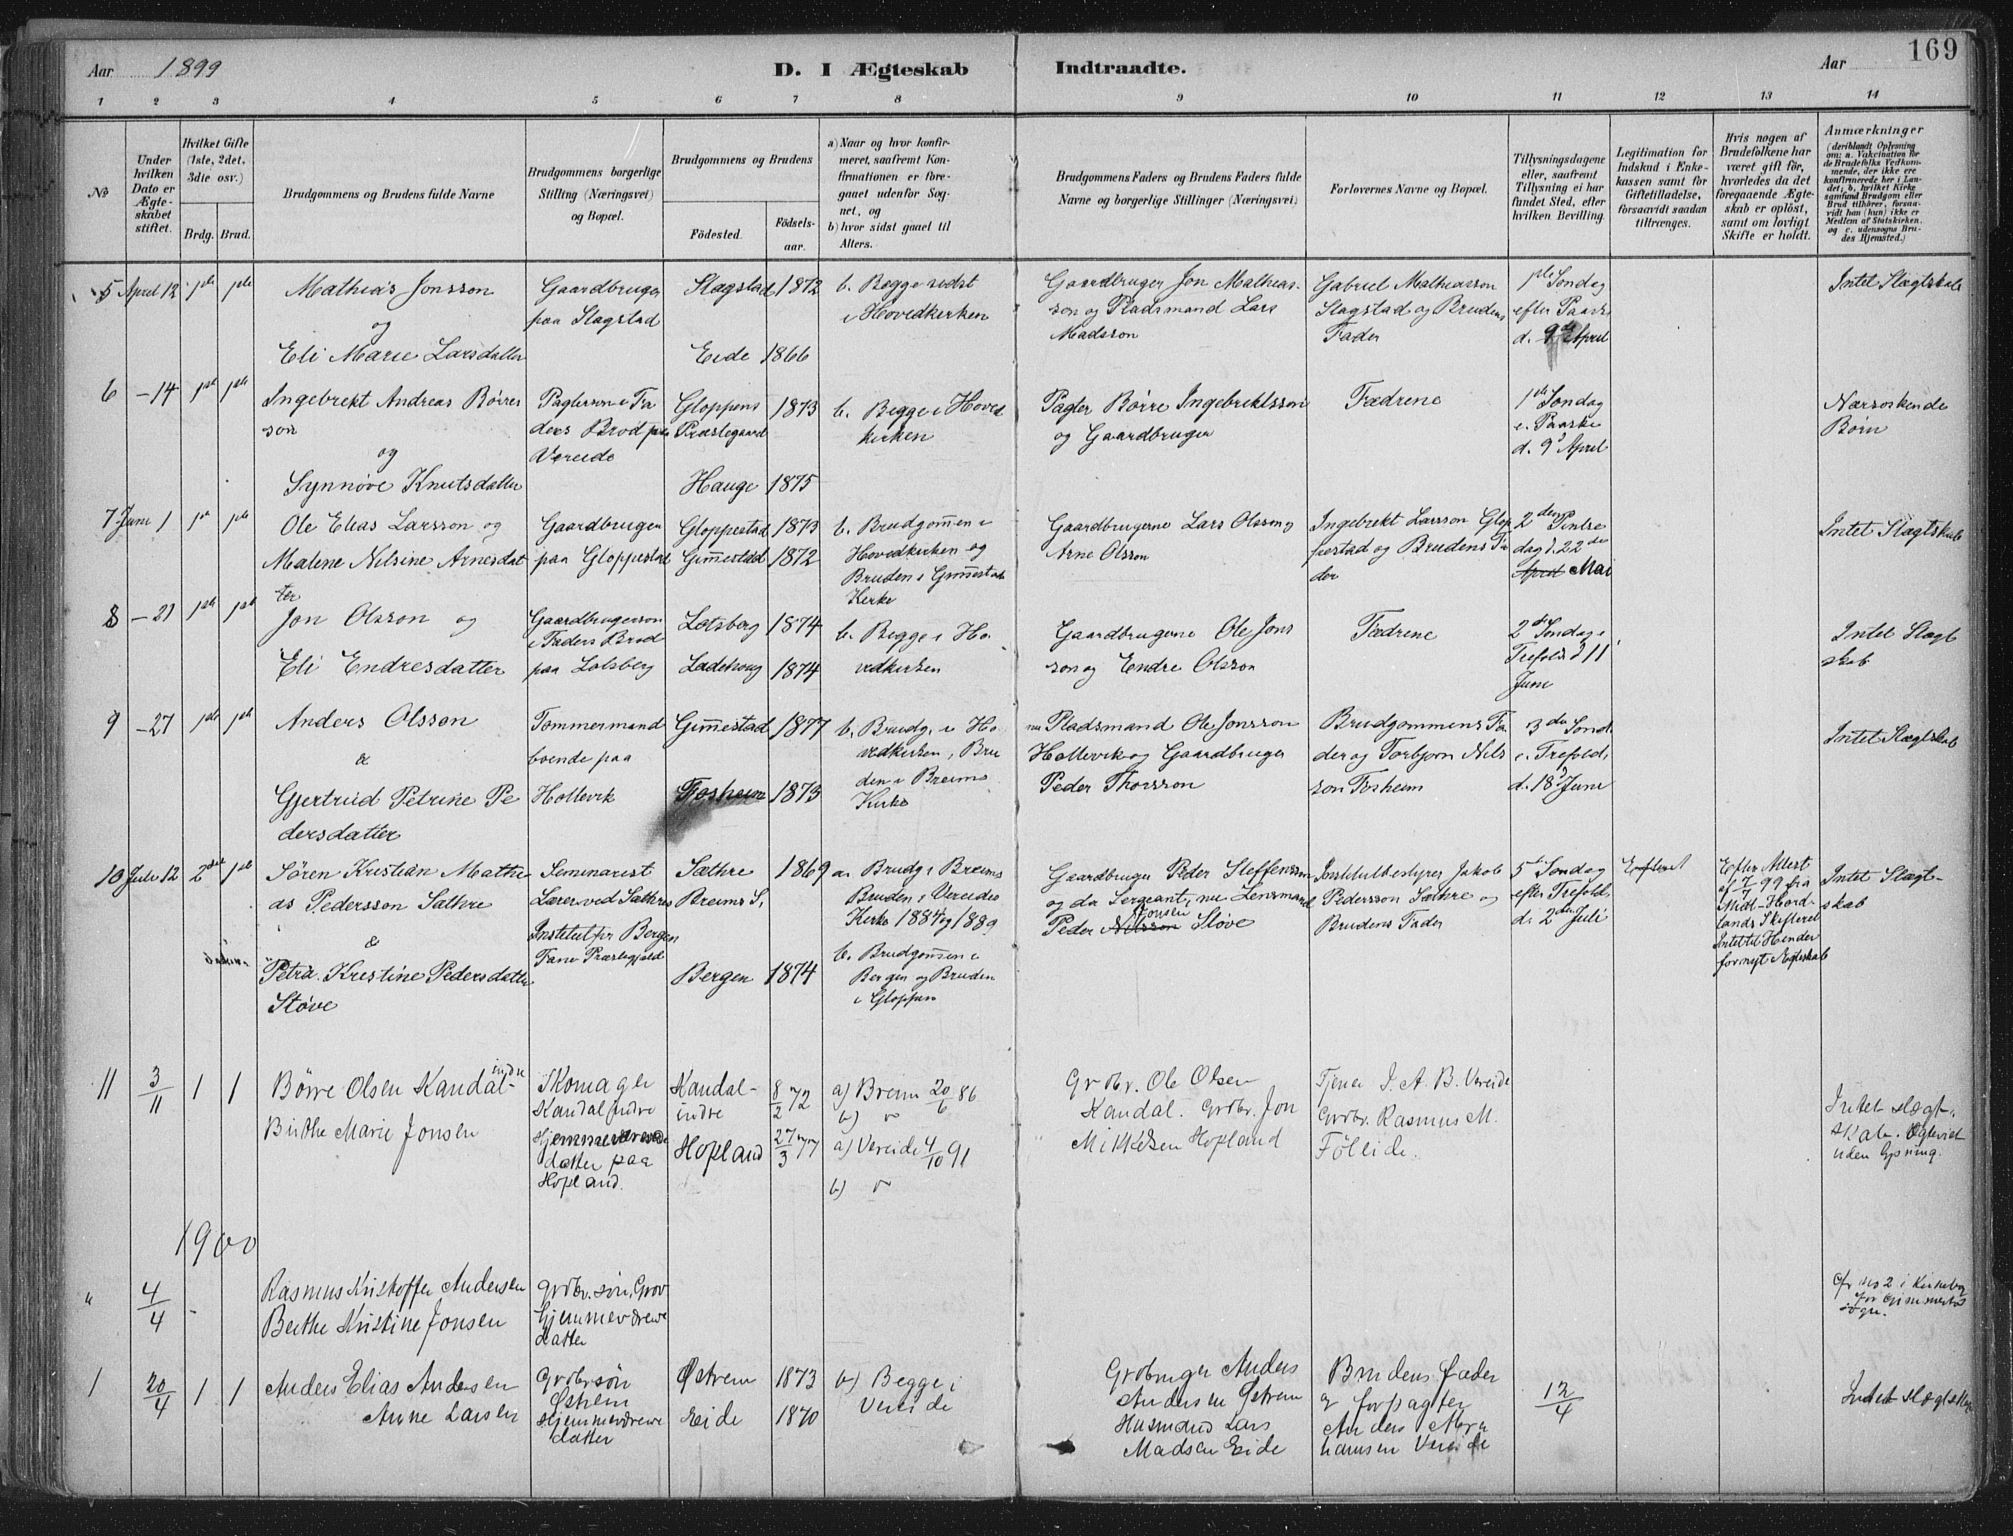 Aar 1899
D. I Ægteskab Indtraadte.
Aar
169
1 2 3 4 5 6 7 8 9 10 11 12 13 14
No
Under hvilken Dato er Ægteskabet stiftet.
Hvilket Gifte (1ste, 2det, 3die osv.)
Brdg. Brud.
Brudgommens og Brudens fulde Navne
Brudgommens borgerlige Stilling (Næringsvei) og Bopæl.
Brudgommens og Brudens
Födested.
Födsels-aar.
a) Naar og hvor konfirmeret, saafremt Konfirmationen er foregaaet udenfor Sognet, og
b) hvor sidst gaaet til Alters.
Brudgommens Faders og Brudens Faders fulde Navne og borgerlige Stillinger (Næringsvei)
Forlovernes Navne og Bopæl.
Tillysningsdagene eller, saafremt Tillysning ei har fundet Sted, efter hvilken Bevilling.
Legitimation for Indskud i Enkekassen samt for Giftetilladelse, forsaavidt saadan tiltrænges.
Hvis nogen af Brudefolkene har været gift før, hvorledes da det foregaaende Ægteskab er oplöst, samt om lovligt Skifte er holdt.
Anmærkninger (deriblandt Oplysning om: a. Vakcination for de Brudefolks Vedkommende, der ikke ere konfirmerede her i Landet; b. hvilket Kirkesamfund Brudgom eller Brud tilhører, forsaavidt han (hun) ikke er Medlem af Statskirken, og c. udensogns Brudes Hjemsted.)
5 April 12 1ste 1ste
Mathias Jonsson
og
Eli Marie Larsdatter
Gaardbruger
paa Slagstad
Slagstad 1872
Eide 1866
b. Begge sidst
i Hovedkirken
Gaardbruger Jon Mathias-
son og Pladsmand Lars
Madsson
Gabriel Mathiasson
Slagstad og Brudens
Fader
1ste Søndag
efter Paaske
d. 9de April
Intet Slægtskab
6 -14 1ste 1ste
Ingebrekt Andreas Börres
son
og
Synnöve Knutsdatter
Pagterson i Fa
ders Bröd paa
Vereide
Gloppens
Præstegaard 1873
Hauge 1875
b. Begge i Hoved
kirken
Pagter Börre Ingebrektsson
og Gaardbruger
Fædrene
1ste Søndag
e. Paaske
d. 9de April
Næsoskende
Born
7 Juni 1 1ste 1ste
Ole Elias Larsson og
Malene Nilsine Arnesdat
ter
Gaardbruger
paa Gloppestad
Gloppestad 1873
Gimmestad 1872
b. Brudgommen i
Hovedkirken og
Bruden i Gimmestad
Kirke
Gaardbrugerne Lars Olsson og
Arne Olsson
Ingebrekt Larsson Glop
pestad og Brudens Fa
der
2den Pintse
dag d. 22de
April Mai
Intet Slægtskab
8 -21 1ste 1ste
Jon Olsson og
Eli Endresdatter
Gaardbrugerson
i Faders Brod
paa Lotsberg
Lotsberg 1874
Ladehoug 1874
b. Begge i Ho
vedkirken
Gaardbrugerne Ole Jons
son og Endre Olsson
Fædrene
2den Søndag e
Trefold. d 11
Juni
Intet Slægt
skab
9 -27 1ste 1ste
Anders Olsson
&
Gjertrud Petrine Pe
dersdatter
Tommermand
boende paa
Hollevik
Gimmestad 1877
Fosheim 1873
b. Brudg. i Ho
vedkirken, Bru
den i Breims
Kirke
Pladsmand Ole Jonsson
Hollevik og Gaardbruger
Peder Thorsson
Brudgommens Fa
der og Torbjorn Nils
son Fosheim
3die Sönd.
e. Trefold.
d. 18 Juni
Intet Slægtskab
10 Juli 12 2det 1ste
Sören Kristian Mathi
as Pedersson Sæthre
&
Petra Kristine Pedersdatter
Støve
Seminarist
Lærer ved Sæthres
Institut for Bergen
Fane Præstegjeld
Sæthre
Breims S. 1869
Bergen 1874
a. Brudg i Breims
Bruden i Vereides
Kirke 1884 og 1889
b. Brudgommen i
Bergen og Bruden
i Gloppen
Gaardbruger Peder Steffensson
og da Sergeant, nu Lensmand
Peder Nilsson Jonsen Støve
Institutbestyrer Jakob
Pedersson Sæthre og
Brudens Fader
5te Søndag
efter Trefold.
d. 2den Juli
Efter Attest
af 7/7 99 fra
Midt-Hord-
lands Skifteret
Intet til Hinder
for nyt Ægteskab
Intet Slægt-
skab
11 3/11 1 1
Börre Olsen Kandal-
indre
Birthe Marie Jonsen
Skomager
Kandal indre
Hjemmeværende
datter paa
Hopland.
Kandal-
indre 8/2 72
Hopland 27/3 77
a) Breim 20/6 86
b) "
a) Vereide 4/10 91
b) "
Grdbr. Ole Olsen
Kandal. Grdbr. Jon
Mikkelsen Hopland
Tjener I. A. B. Vereide
Grdbr. Rasmus M.
Föleide.
Intet slægt-
skab. Ægteviet
uden lysning.
1900
" 4/4 -
Rasmus Kristoffer Andersen
Berthe Kristine Jonsen
Grdbr. sön, Grov
Hjemmeværende
datter
Cfr No 2 i Kirkebog
for Gimmestad
sogn.
1 20/4 1 1
Anders Elias Andersen
Anne Larsen
Grdbr sön
Østrem
Hjemmeværende
datter
Østrem 1873
Eide 1870
b) Begge i
Vereide
Grdbruger Anders
Andersen Østrem
Husmand Lars
Madsen Eide
Brudens fader
og forpagter
Anders Abra
hamsen Vereide
12/4
Intet slægtskab